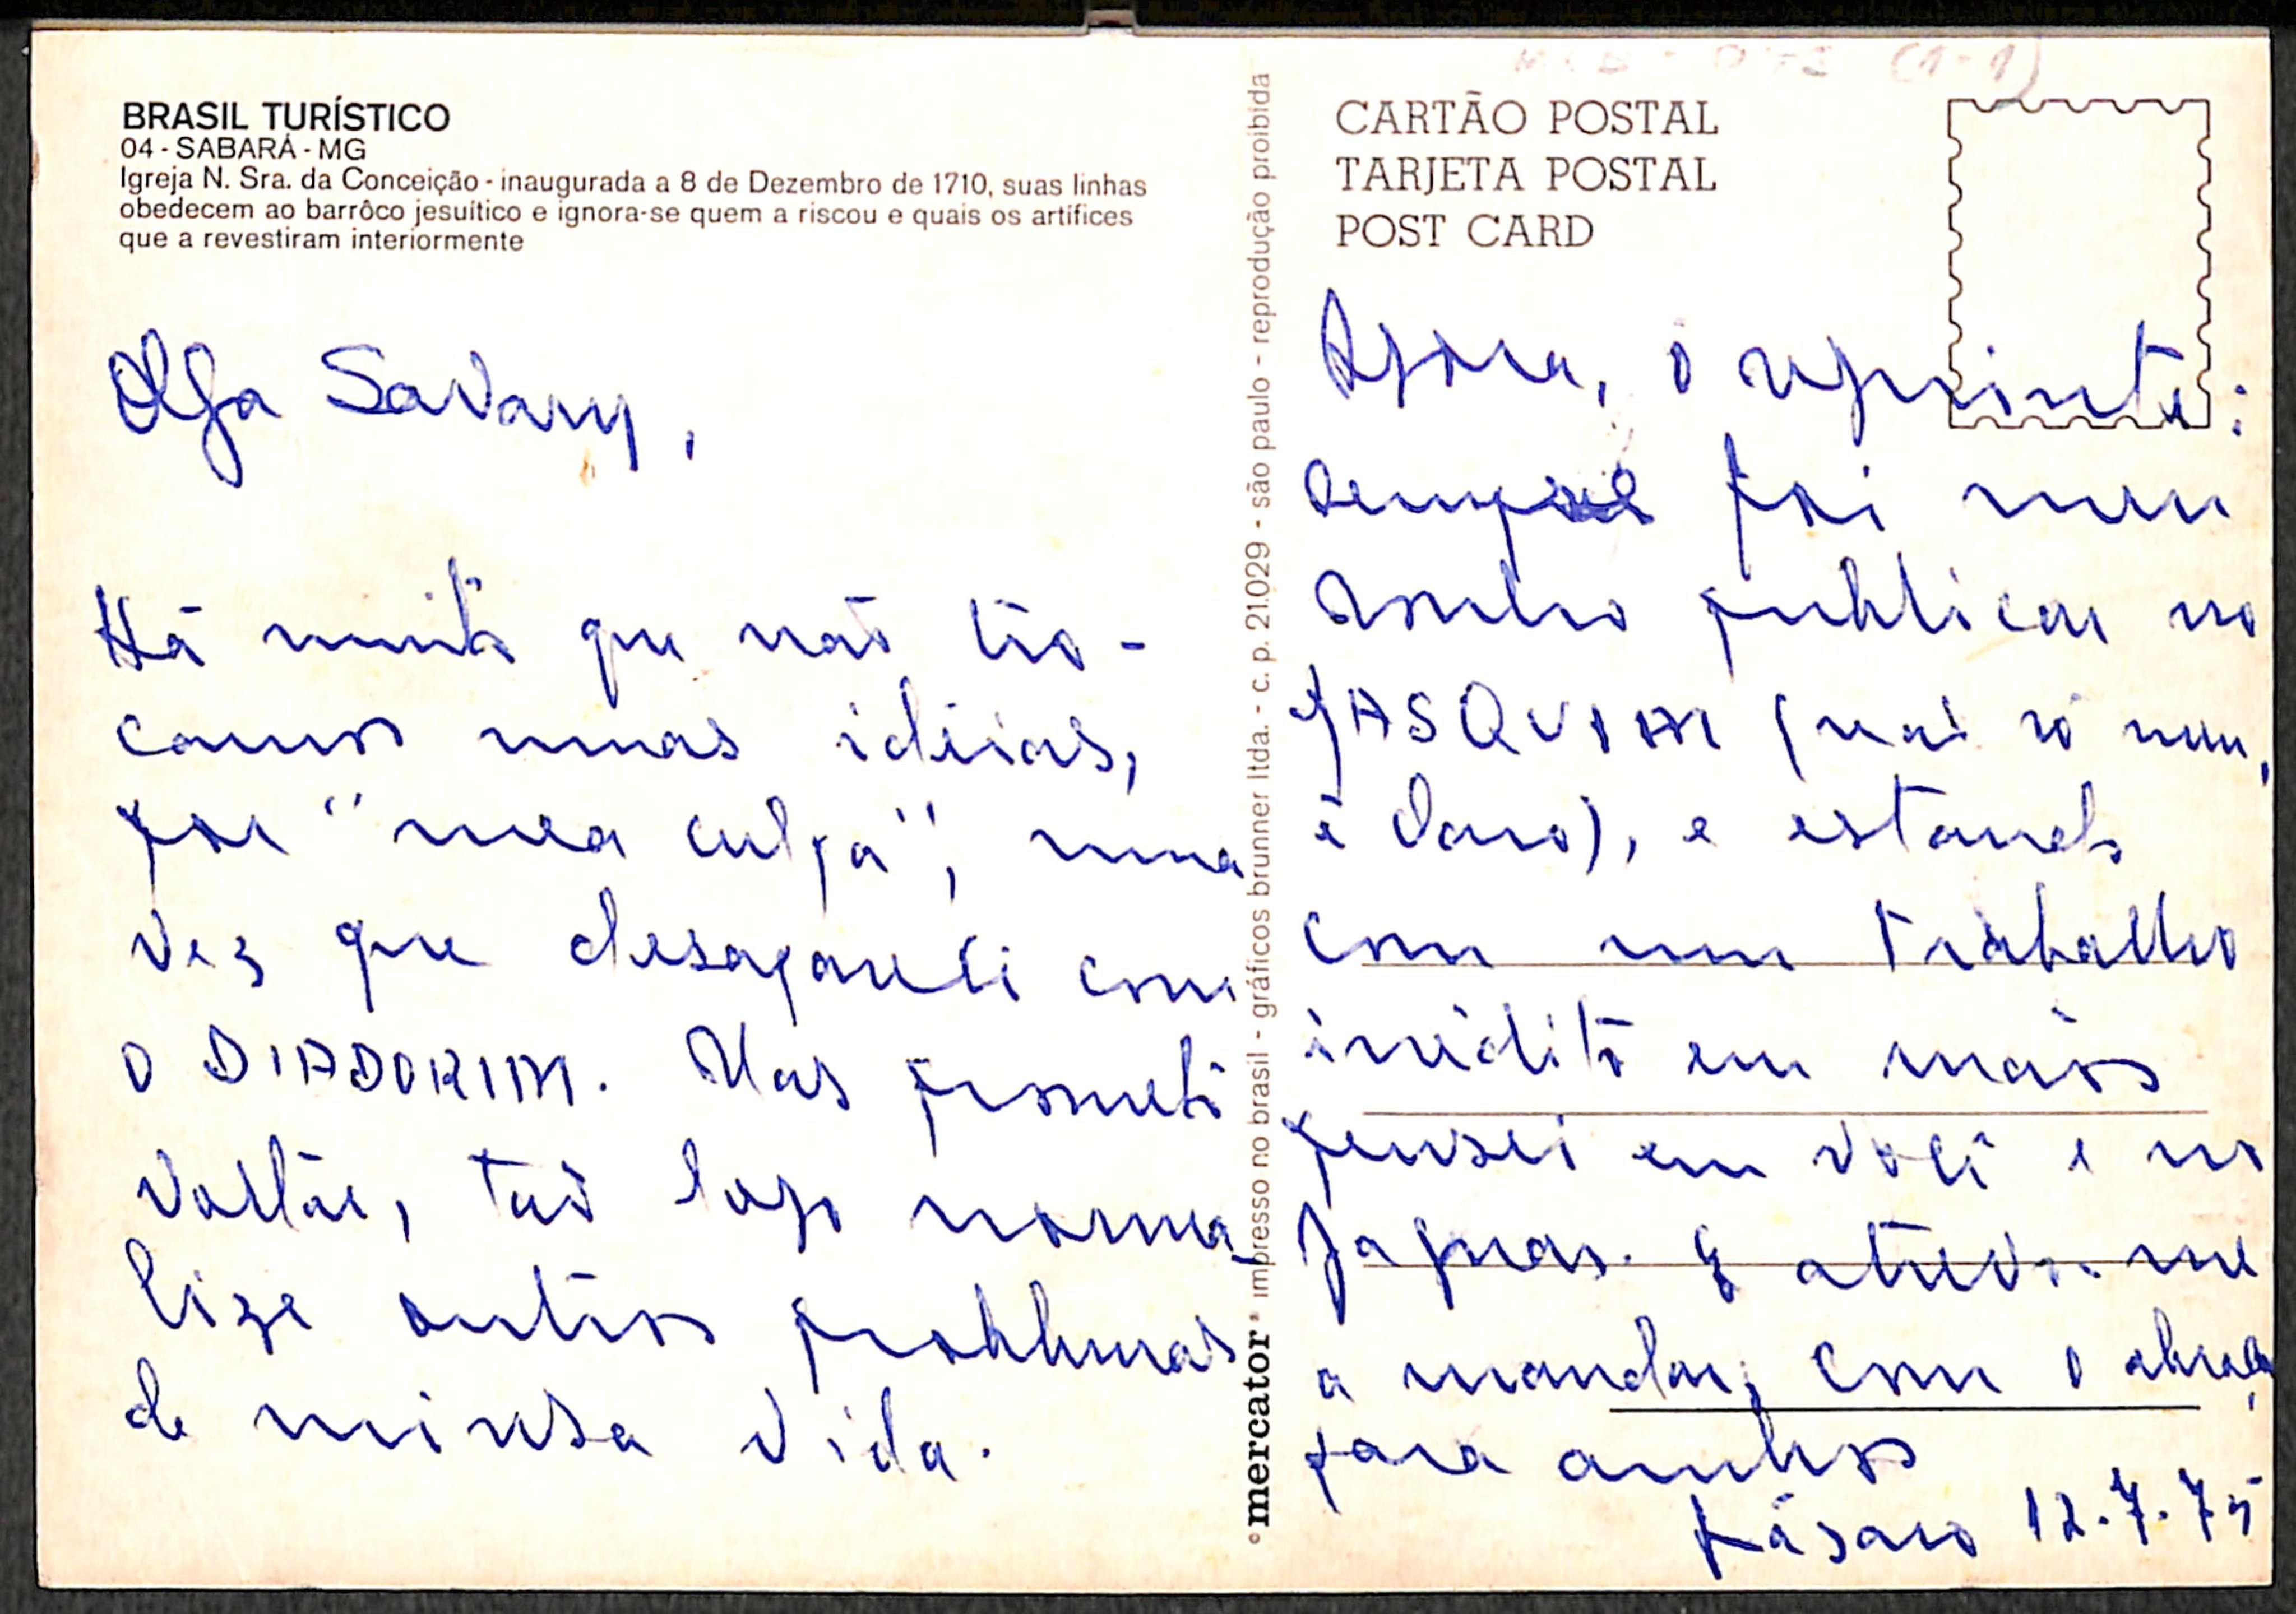 BRASIL TURÍSTICO
04 - SABARÁ - MG
Igreja N. Sra. da Conceição - inaugurada a 8 de Dezembro de 1710, suas linhas
obedecem ao barrôco jesuítico e ignora-se quem a riscou e quais os artífices
que a revestiram interiormente
Olga Savary,
Há muito que não tro-
camos umas idéias,
por "mea culpa", uma
vez que desapareci com
o DIADORIM. Mas prometo
voltar, tão logo norma-
lize outros problemas
de minha vida.
mercator impresso no brasil - gráficos brunner ltda. - c. p. 21.029 - são paulo - reprodução proibida
(1-1)
CARTÃO POSTAL
TARJETA POSTAL
POST CARD
Agora, o seguinte:
sempre foi meu
sonho publicar no
PASQUIM (não só meu,
é claro), e estando
com um trabalho
inédito em mãos
pensei em você e no
Jaguar. E atrevo-me
a mandar, com o abraço
para ambos
Lázaro 12.7.75